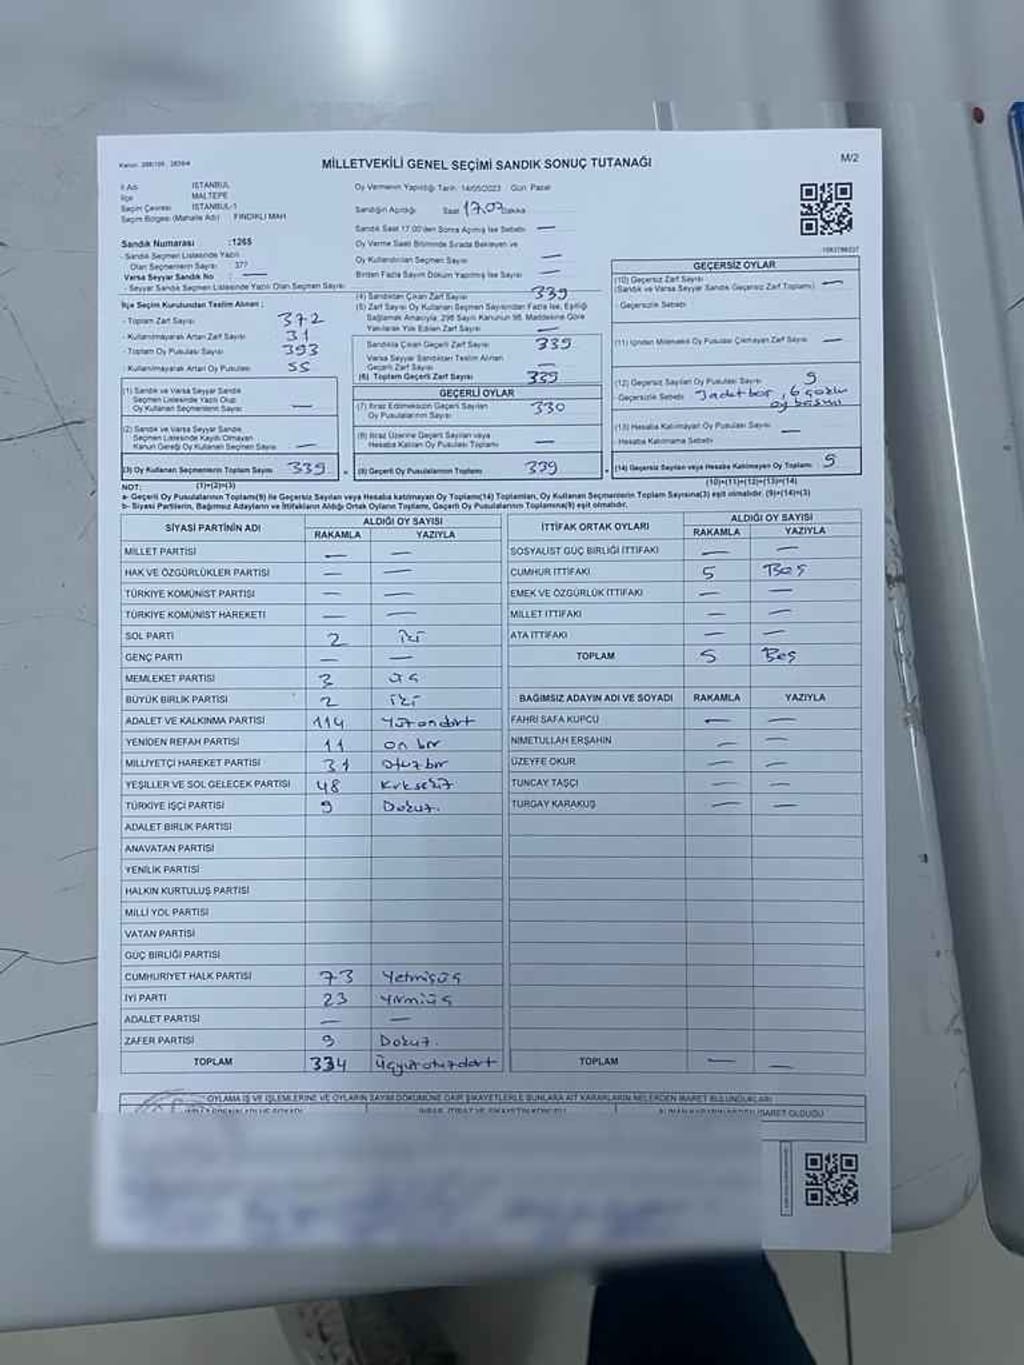 MİLLETVEKİLİ GENEL SEÇİMİ SANDIK SONUÇ TUTANAĞI
M/2
İl Adı İSTANBUL
İlçe MALTEPE
Seçim Çevresi İSTANBUL-1
Seçim Bölgesi (Mahalle Adı) FINDIKLI MAH
Oy Vermenin Yapıldığı Tarih 14/05/2023 Gün Pazar
Sandığın Açıldığı Saat 17.07 Dakika
Sandık Saat 17.00'den Sonra Açılmış İse Sebebi —
Oy Verme Saati Bitiminde Sırada Bekleyen ve
Oy Kullandırılan Seçmen Sayısı —
Birden Fazla Sayım Döküm Yapılmış İse Sayısı —
Sandık Numarası :1265
- Sandık Seçmen Listesinde Yazılı
Olan Seçmenlerin Sayısı 377
Varsa Seyyar Sandık No : —
- Seyyar Sandık Seçmen Listesinde Yazılı Olan Seçmen Sayısı
İlçe Seçim Kurulundan Teslim Alınan ;
- Toplam Zarf Sayısı 372
- Kullanılmayarak Artan Zarf Sayısı 31
- Toplam Oy Pusulası Sayısı 393
- Kullanılmayarak Artan Oy Pusulası 55
(1) Sandık ve Varsa Seyyar Sandık
Seçmen Listesinde Yazılı Olup
Oy Kullanan Seçmenlerin Sayısı —
(2) Sandık ve Varsa Seyyar Sandık
Seçmen Listesinde Kayıtlı Olmayan
Kanun Gereği Oy Kullanan Seçmen Sayısı —
(3) Oy Kullanan Seçmenlerin Toplam Sayısı 339
(4) Sandıktan Çıkan Zarf Sayısı 339
(5) Zarf Sayısı Oy Kullanan Seçmen Sayısından Fazla İse, Eşitliği
Sağlamak Amacıyla, 298 Sayılı Kanunun 98. Maddesine Göre
Yakılarak Yok Edilen Zarf Sayısı —
Sandıkta Çıkan Geçerli Zarf Sayısı 339
Varsa Seyyar Sandıktan Teslim Alınan
Geçerli Zarf Sayısı —
(6) Toplam Geçerli Zarf Sayısı 339
GEÇERLİ OYLAR
(7) İtiraz Edilmeksizin Geçerli Sayılan
Oy Pusulalarının Sayısı 330
(8) İtiraz Üzerine Geçerli Sayılan veya
Hesaba Katılan Oy Pusulası Toplamı —
(9) Geçerli Oy Pusulalarının Toplamı 339
GEÇERSİZ OYLAR
(10) Geçersiz Zarf Sayısı
(Sandık ve Varsa Seyyar Sandık Geçersiz Zarf Toplamı) —
- Geçersizlik Sebebi
(11) İçinden Milletvekili Oy Pusulası Çıkmayan Zarf Sayısı —
(12) Geçersiz Sayılan Oy Pusulası Sayısı 9
- Geçersizlik Sebebi 3 adet boş, 6 çoklu
oy basımı
(13) Hesaba Katılmayan Oy Pusulası Sayısı —
- Hesaba Katılmama Sebebi
(14) Geçersiz Sayılan veya Hesaba Katılmayan Oy Toplamı 9
NOT: (1)+(2)=(3) (10)+(11)+(12)+(13)=(14)
a- Geçerli Oy Pusulalarının Toplamı(9) ile Geçersiz Sayılan veya Hesaba katılmayan Oy Toplamı(14) Toplamları, Oy Kullanan Seçmenlerin Toplam Sayısına(3) eşit olmalıdır. (9)+(14)=(3)
b- Siyasi Partilerin, Bağımsız Adayların ve İttifakların Aldığı Ortak Oyların Toplamı, Geçerli Oy Pusulalarının Toplamına(9) eşit olmalıdır.
SİYASİ PARTİNİN ADI ALDIĞI OY SAYISI
RAKAMLA YAZIYLA
MİLLET PARTİSİ — —
HAK VE ÖZGÜRLÜKLER PARTİSİ — —
TÜRKİYE KOMÜNİST PARTİSİ — —
TÜRKİYE KOMÜNİST HAREKETİ — —
SOL PARTİ 2 iki
GENÇ PARTİ — —
MEMLEKET PARTİSİ 3 üç
BÜYÜK BİRLİK PARTİSİ 2 iki
ADALET VE KALKINMA PARTİSİ 114 Yüzondört
YENİDEN REFAH PARTİSİ 11 on bir
MİLLİYETÇİ HAREKET PARTİSİ 31 Otuzbir
YEŞİLLER VE SOL GELECEK PARTİSİ 48 Kırksekiz
TÜRKİYE İŞÇİ PARTİSİ 9 Dokuz.
ADALET BİRLİK PARTİSİ
ANAVATAN PARTİSİ
YENİLİK PARTİSİ
HALKIN KURTULUŞ PARTİSİ
MİLLİ YOL PARTİSİ
VATAN PARTİSİ
GÜÇ BİRLİĞİ PARTİSİ
CUMHURİYET HALK PARTİSİ 73 Yetmişüç
İYİ PARTİ 23 Yirmiüç
ADALET PARTİSİ — —
ZAFER PARTİSİ 9 Dokuz.
TOPLAM 334 üçyüzotuzdört
İTTİFAK ORTAK OYLARI ALDIĞI OY SAYISI
RAKAMLA YAZIYLA
SOSYALİST GÜÇ BİRLİĞİ İTTİFAKI — —
CUMHUR İTTİFAKI 5 Beş
EMEK VE ÖZGÜRLÜK İTTİFAKI — —
MİLLET İTTİFAKI — —
ATA İTTİFAKI — —
TOPLAM 5 Beş
BAĞIMSIZ ADAYIN ADI VE SOYADI RAKAMLA YAZIYLA
FAHRİ SAFA KÜPCÜ — —
NİMETULLAH ERŞAHİN — —
ÜZEYFE OKUR — —
TUNCAY TAŞÇI — —
TURGAY KARAKUŞ — —
TOPLAM — —
OYLAMA İŞ VE İŞLEMLERİNE VE OYLARIN SAYIM DÖKÜMÜNE DAİR ŞİKAYETLERLE BUNLARA AİT KARARLARIN NELERDEN İBARET BULUNDUKLARI